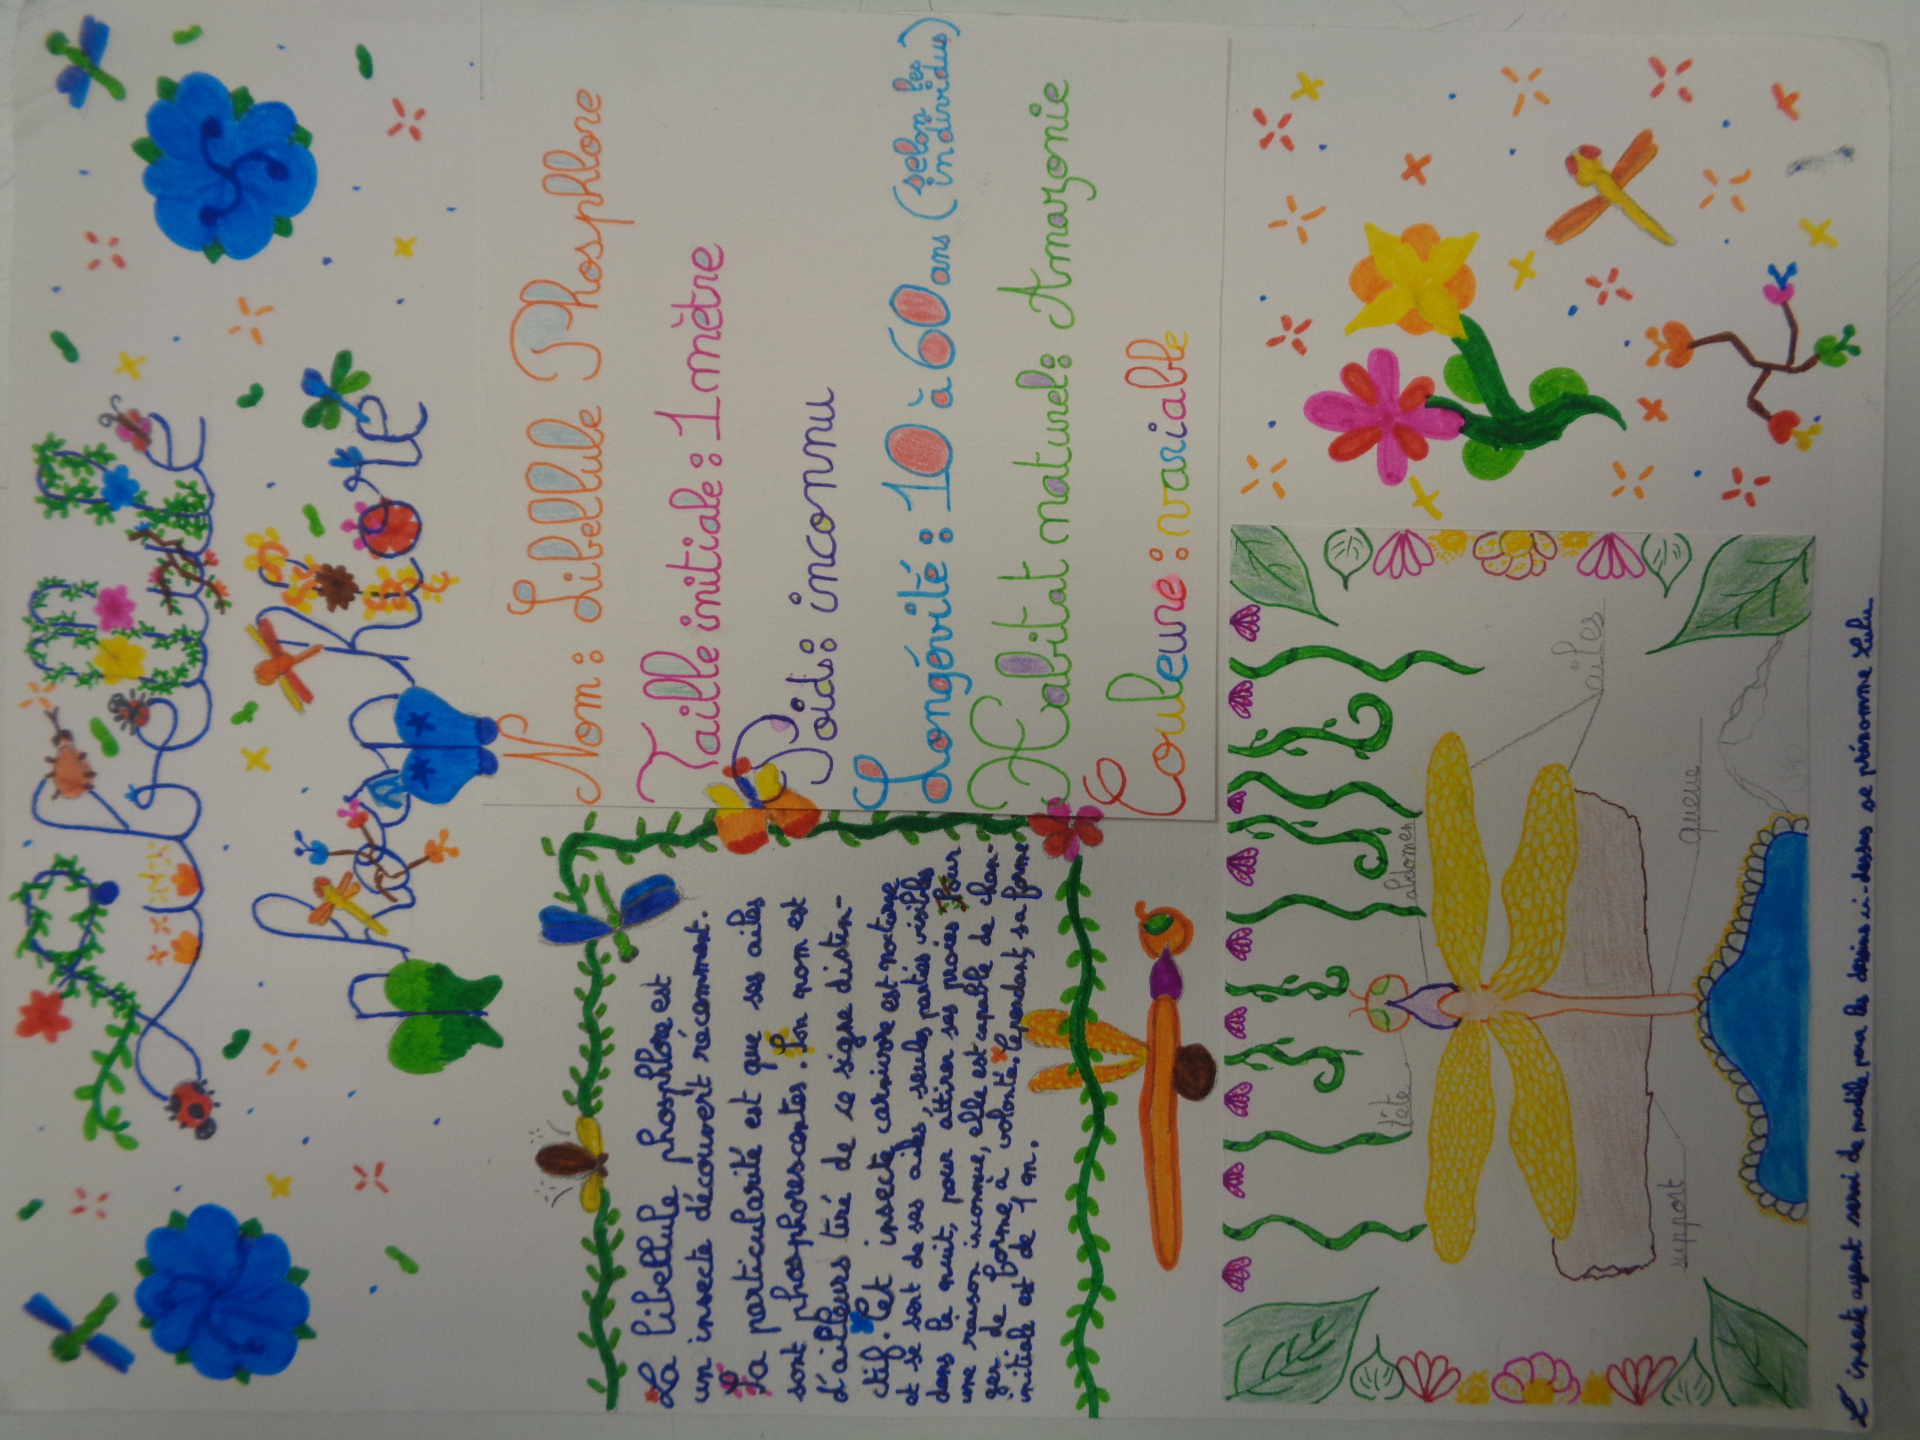 Libellule
Phosphlore
Nom : Libellule Phosphlore
Taille initiale : 1 mètre
Poids : inconnu
Longévité : 10 à 60 ans (selon les individus)
Habitat naturel : Amazonie
Couleure : variable
La libellule phosphlore est
un insecte découvert récemment.
Sa particularité est que ses ailes
sont phosphorescantes. Son nom est
d'ailleurs tiré de ce signe distin-
ctif. Cet insecte carnivore est noctune
et se sert de sas ailes, seules parties visibles
dans la nuit, pour attirer ses proies. Pour
une raison inconnue, elle est capable de chan-
ger de forme à volonté. Cependant, sa forme
initiale est de 1 m.
tête
abdomen
ailes
queue
support
L'insecte ayant servi de modèle pour les dessins ci-dessus se prénome Lulu